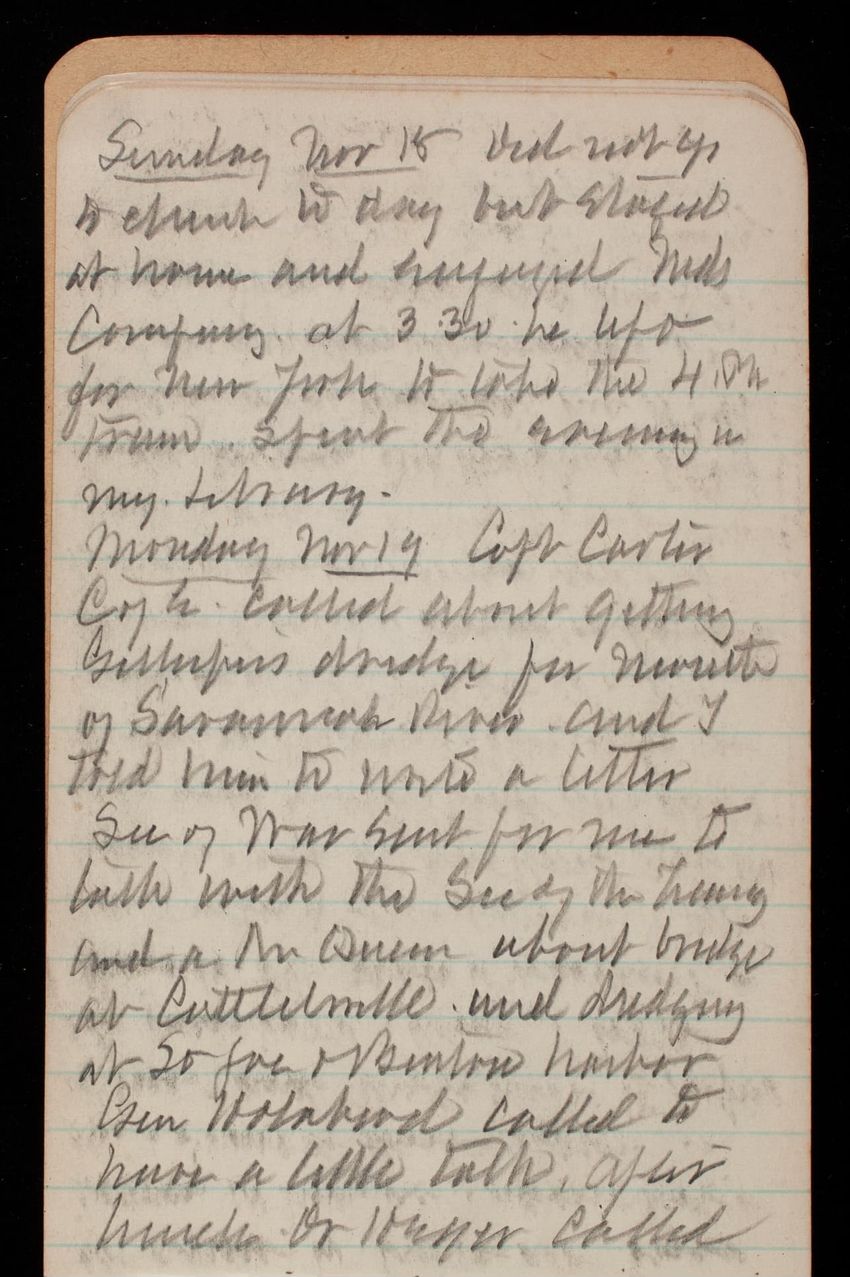 Sunday Nov 18 Did not go
to church to day but stayed
at home and enjoyed Neds
Company. at 3.30 he left
for New York to take the 4
train. Spent the evening in
my Library.
Monday Nov 19 Capt Carter
C of E. called about getting
Gillespies dredge for mouth
of Savannah River and I
told him to write a letter
Sec of War sent for me to
talk with the Sec of the Treasy
and a Mr about bridge
at and dredging
at So Joe & Benton harbor
Gen Holabird called to
have a little talk, after
lunch Dr called